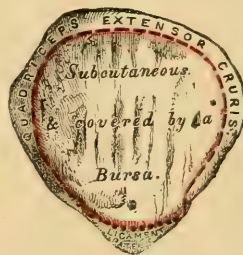 QUADRICEPS EXTENSOR CRURIS.
Subcutaneous
& covered by a
Bursa.
LIGAMENT